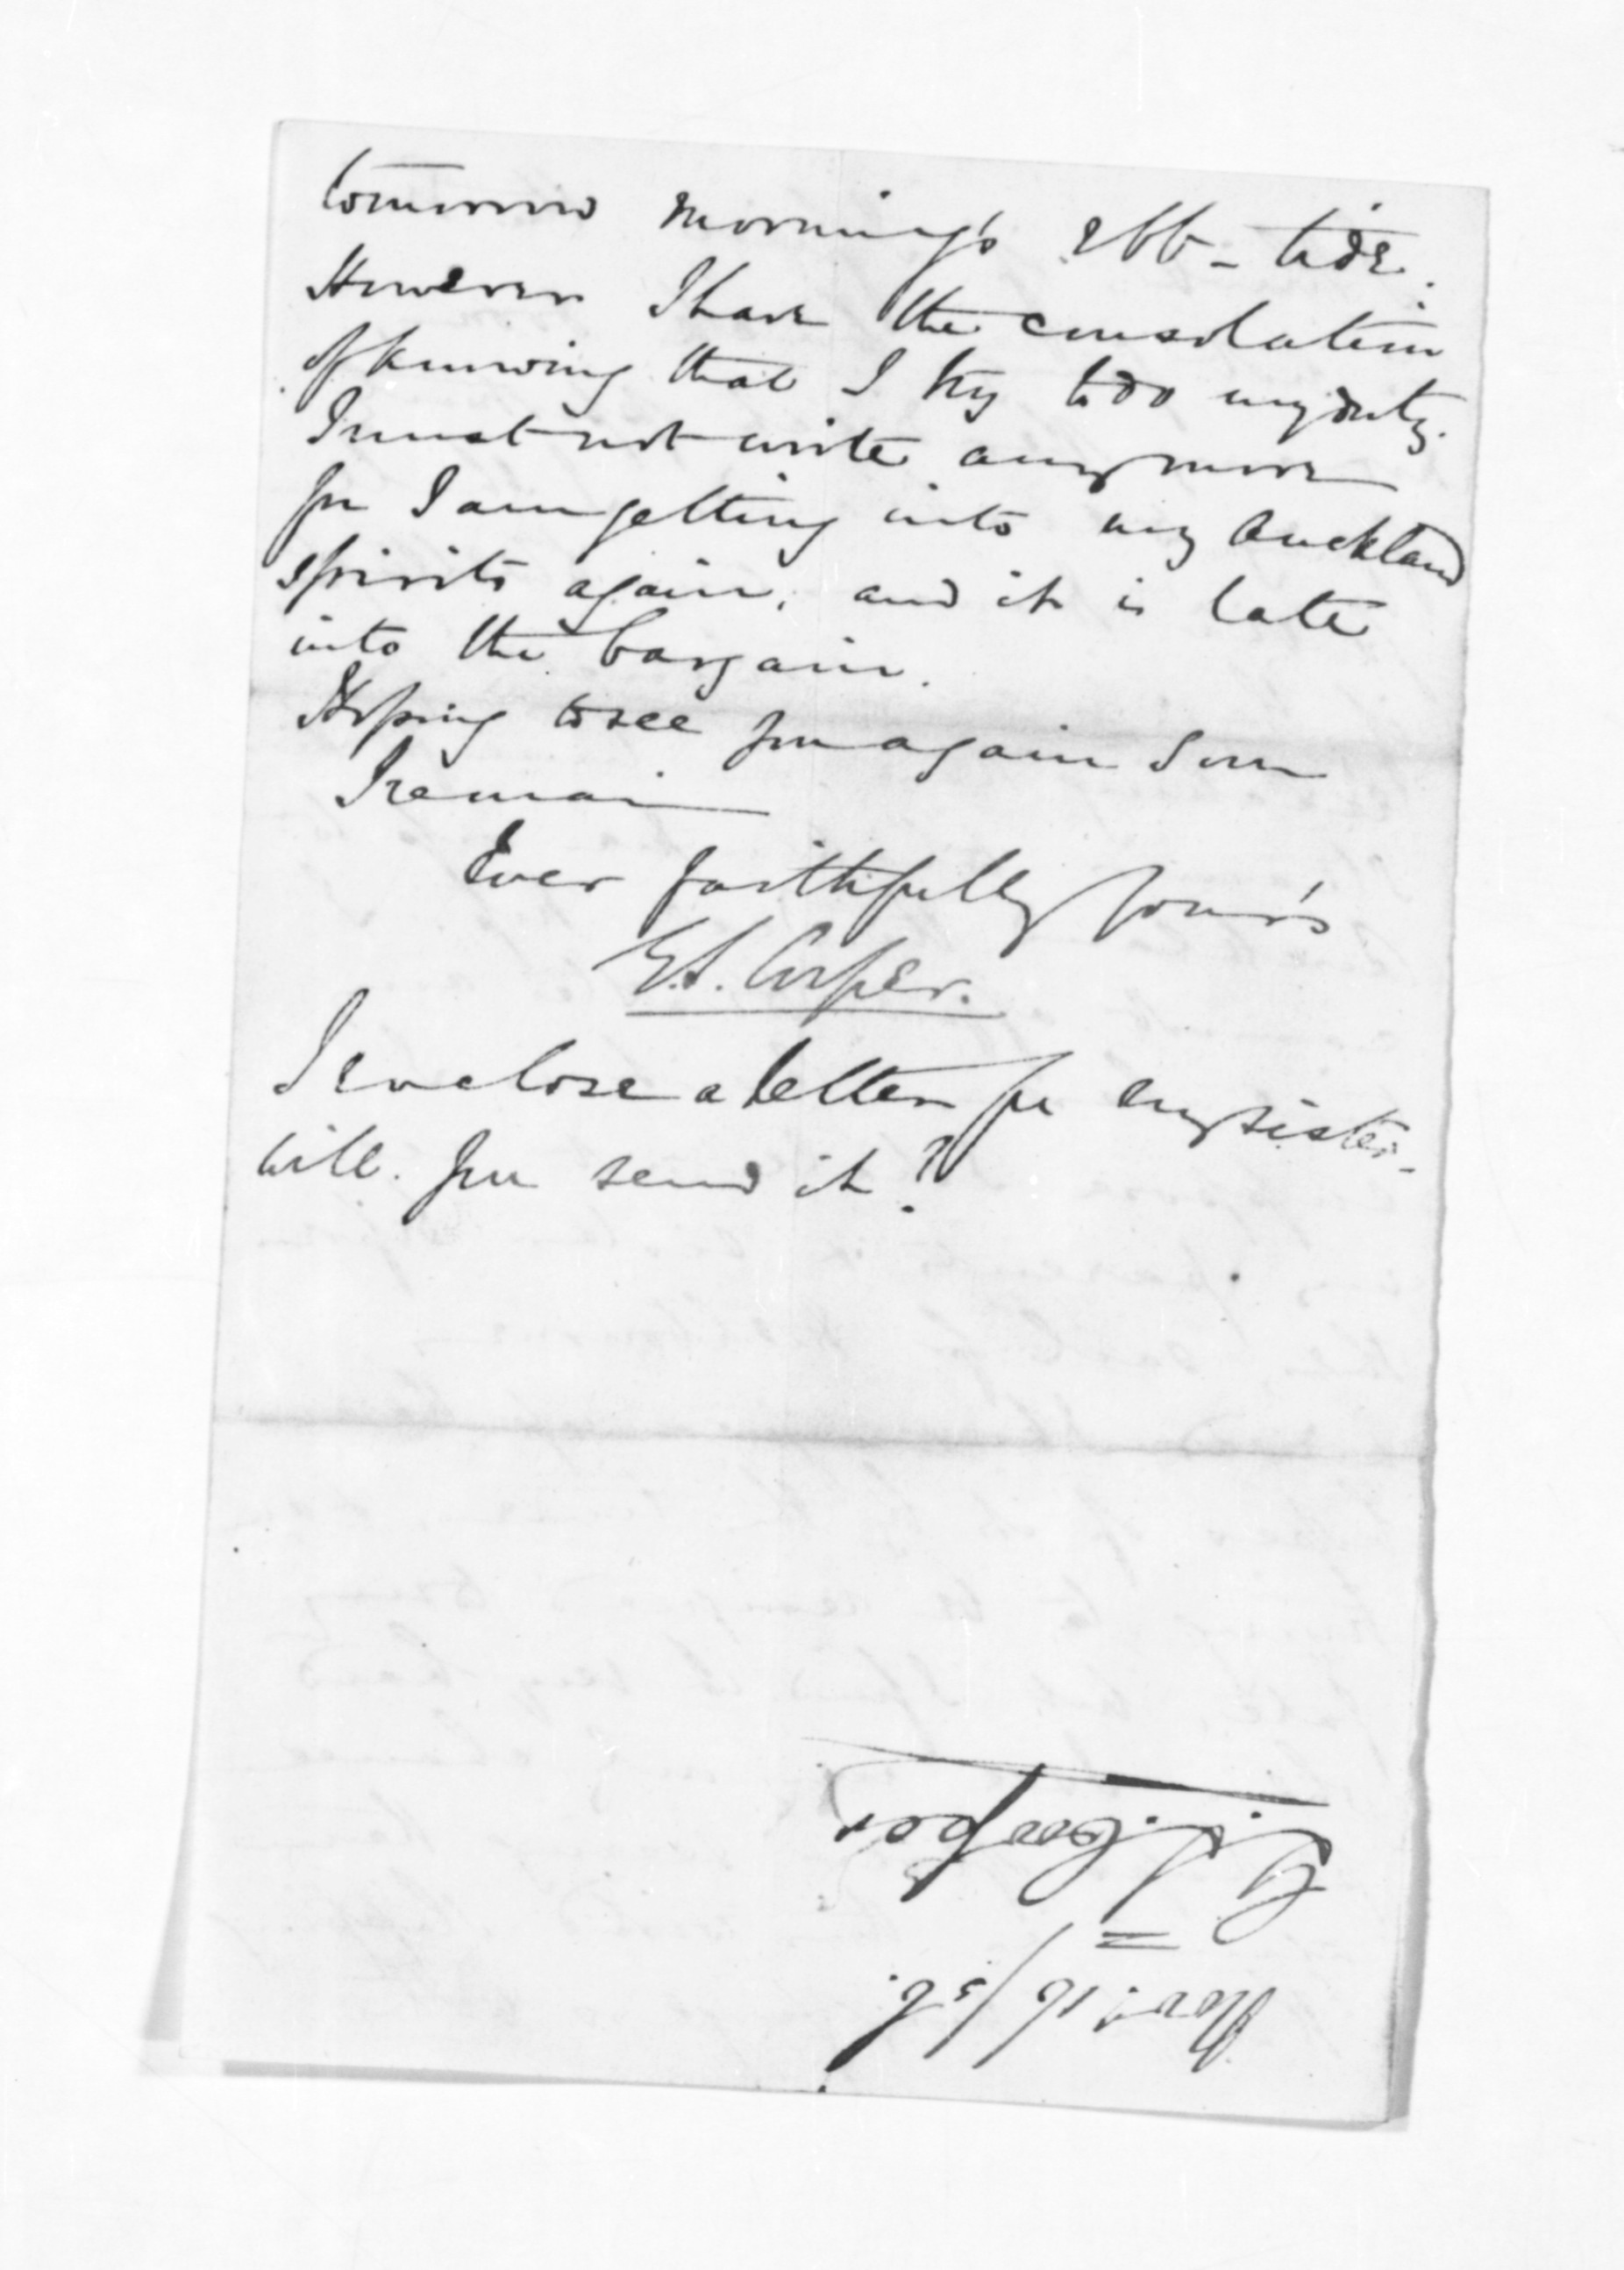 tomorrow morning's ebb-tide.
However I have the consolation
of knowing that I try to do my duty.
I must not write any more
for I am getting into my Auckland
spirits again, and it is late
into the bargain.
Hoping to see you again soon
I remain
Ever faithfully your's
G.S. Cooper.
I enclose a letter for my sister -
will you send it?
G.S. Cooper
Nov: 16/56.